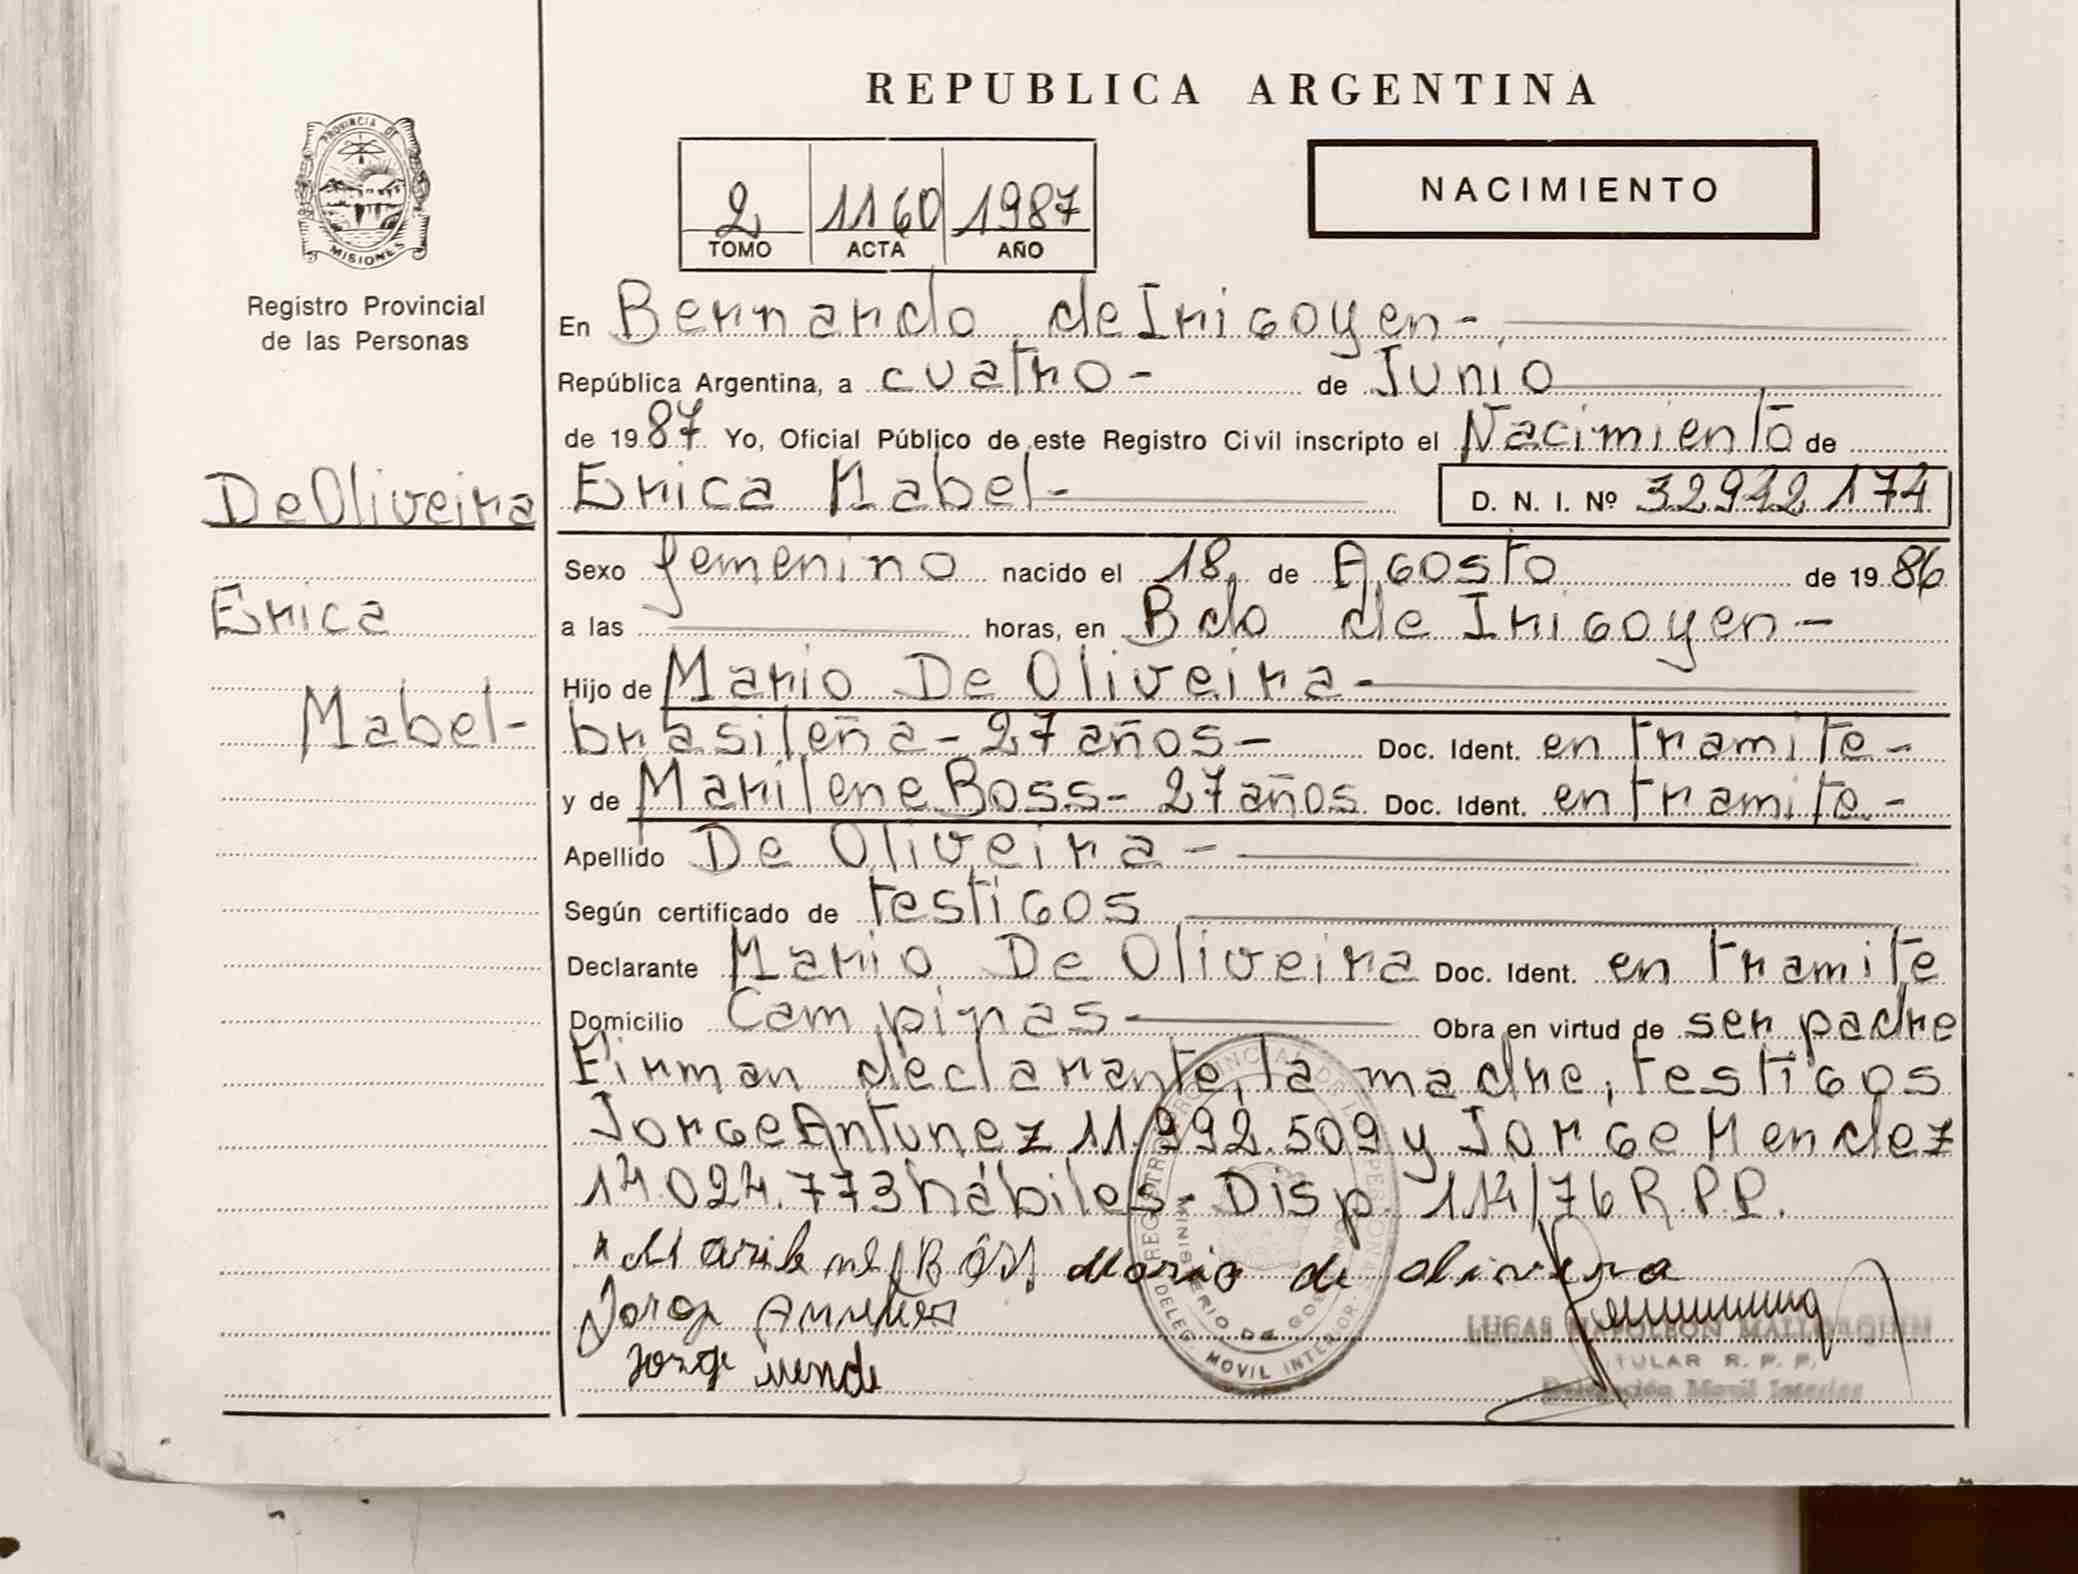 REPUBLICA ARGENTINA
PROVINCIA DE
MISIONES
Registro Provincial
de las Personas
2 1160 1987
TOMO ACTA AÑO
NACIMIENTO
En Bernardo de Irigoyen-
República Argentina, a cuatro- de Junio
de 1987 Yo, Oficial Público de este Registro Civil inscripto el Nacimiento de
De Oliveira
Erica Mabel-
D. N. I. Nº 32942174
Sexo femenino nacido el 18 de Agosto de 1986
Erica
a las horas, en Bdo de Irigoyen-
Hijo de Mario De Oliveira-
Mabel-
brasileña-27 años- Doc. Ident. en tramite-
y de Marilene Boss- 27 años Doc. Ident. en tramite.-
Apellido De Oliveira-
Según certificado de testigos
Declarante Mario De Oliveira Doc. Ident. en tramite
Domicilio Campinas- Obra en virtud de ser padre
Firman declarante, la madre, testigos
Jorge Antunez 11.992.509 y Jorge Mendez
14.024.773 hábiles- Disp. 114/76 R.P.P.
Mario de olivera
Jorge
Jorge mende
DELEG. MOVIL INTERIOR
LUCAS NAPOLEON
TULAR R. P. P.
Delegación Movil Interior